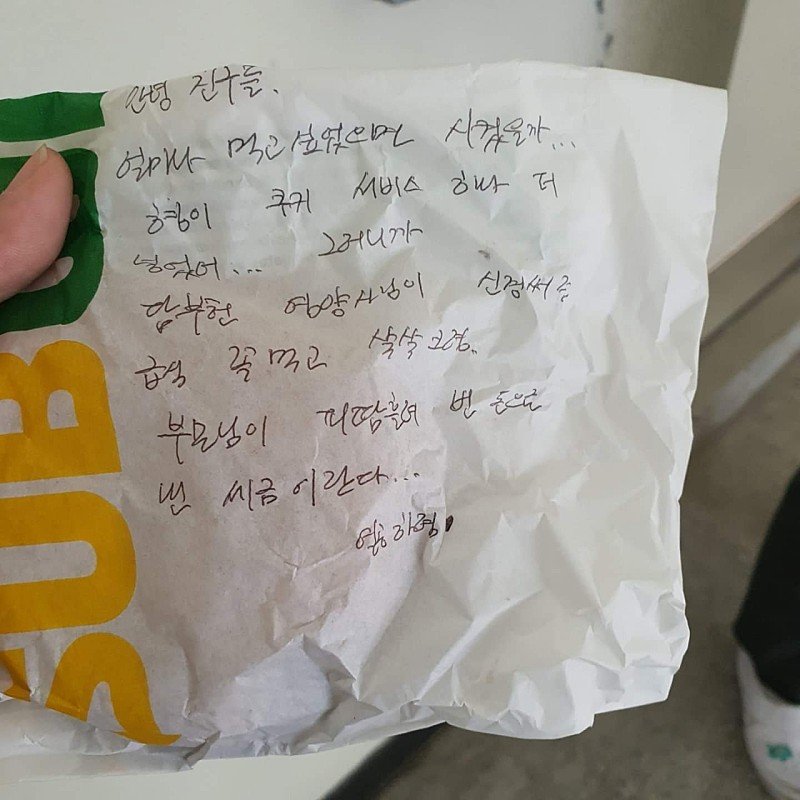 안녕 친구들.
얼마나 먹고싶었으면 시켰을까...
형이 쿠키 서비스 하나 더
넣었어... 그러니까
담부턴 영양사님이 신경써준
급식 꼭 먹고 쑥쑥 크렴..
부모님이 피땀흘려 번 돈으로
낸 세금이란다...
열공하렴.
SUB